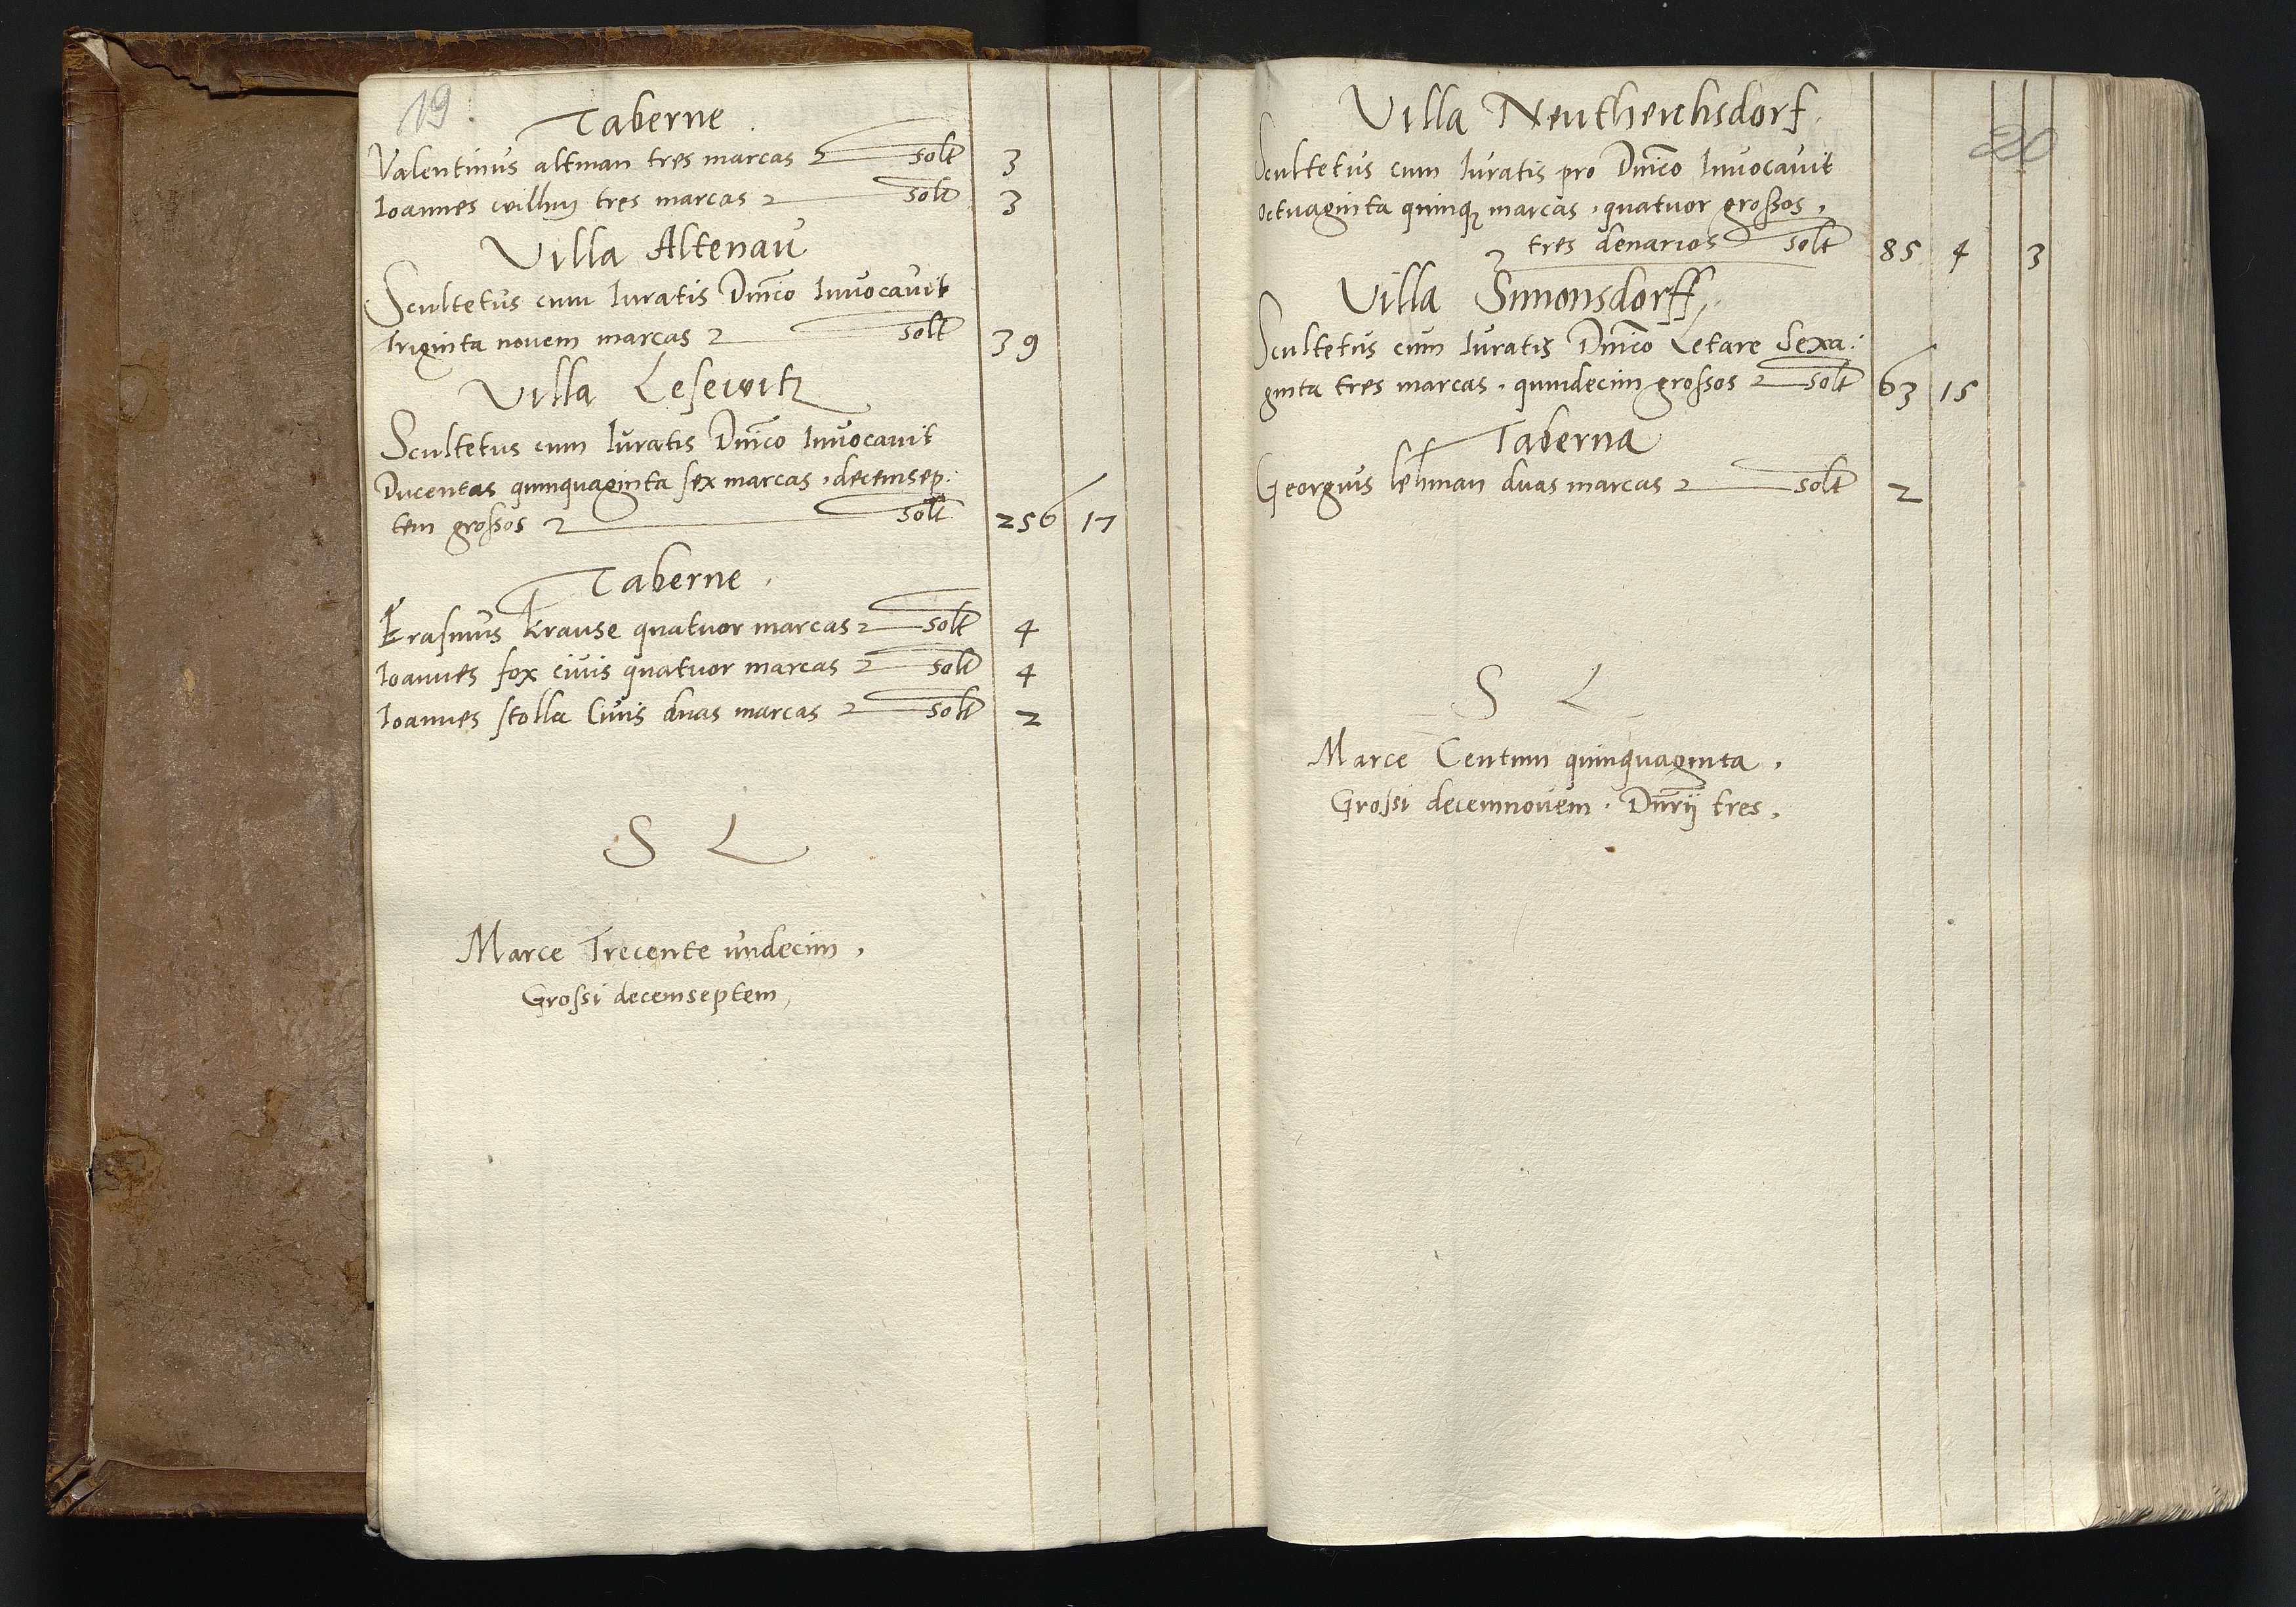 19
Taberne
Valentinus altman tres marcas solt 3
Ioannes willm tres marcas solt 3
Villa Altenau
Scultetus cum Iuratis Dnico Invocavit
Triginta novem marcas solt 39
Villa Lesewitz
Scultetus cum Iuratis Dnico Invocavit
Ducentas quinquaginta sex marcas, decemsep:
tem grossos solt 256 17
Taberne
Erasmus Krause quatuor marcas solt 4
Ioannes fox civis quatuor marcas solt 4
Ioannes stolla Civis duas marcas solt 2
S L
Marce Trecente undecim,
Grossi decemseptem,
20
Villa Neutheichsdorf
Scultetus cum Iuratis pro Dnico Invocavit
octuaginta quinq marcas, quatuor grossos,
tres denarios solt 85 4 3
Villa Simonsdorff
Scultetus cum Iuratis Dnico Letare Sexa:
ginta tres marcas, quindecim grossos solt 63 15
Taberna
Georgius lehman duas marcas solt 2
S L
Marce Centum quinquaginta,
Grossi decemnovem. Dnrij tres,